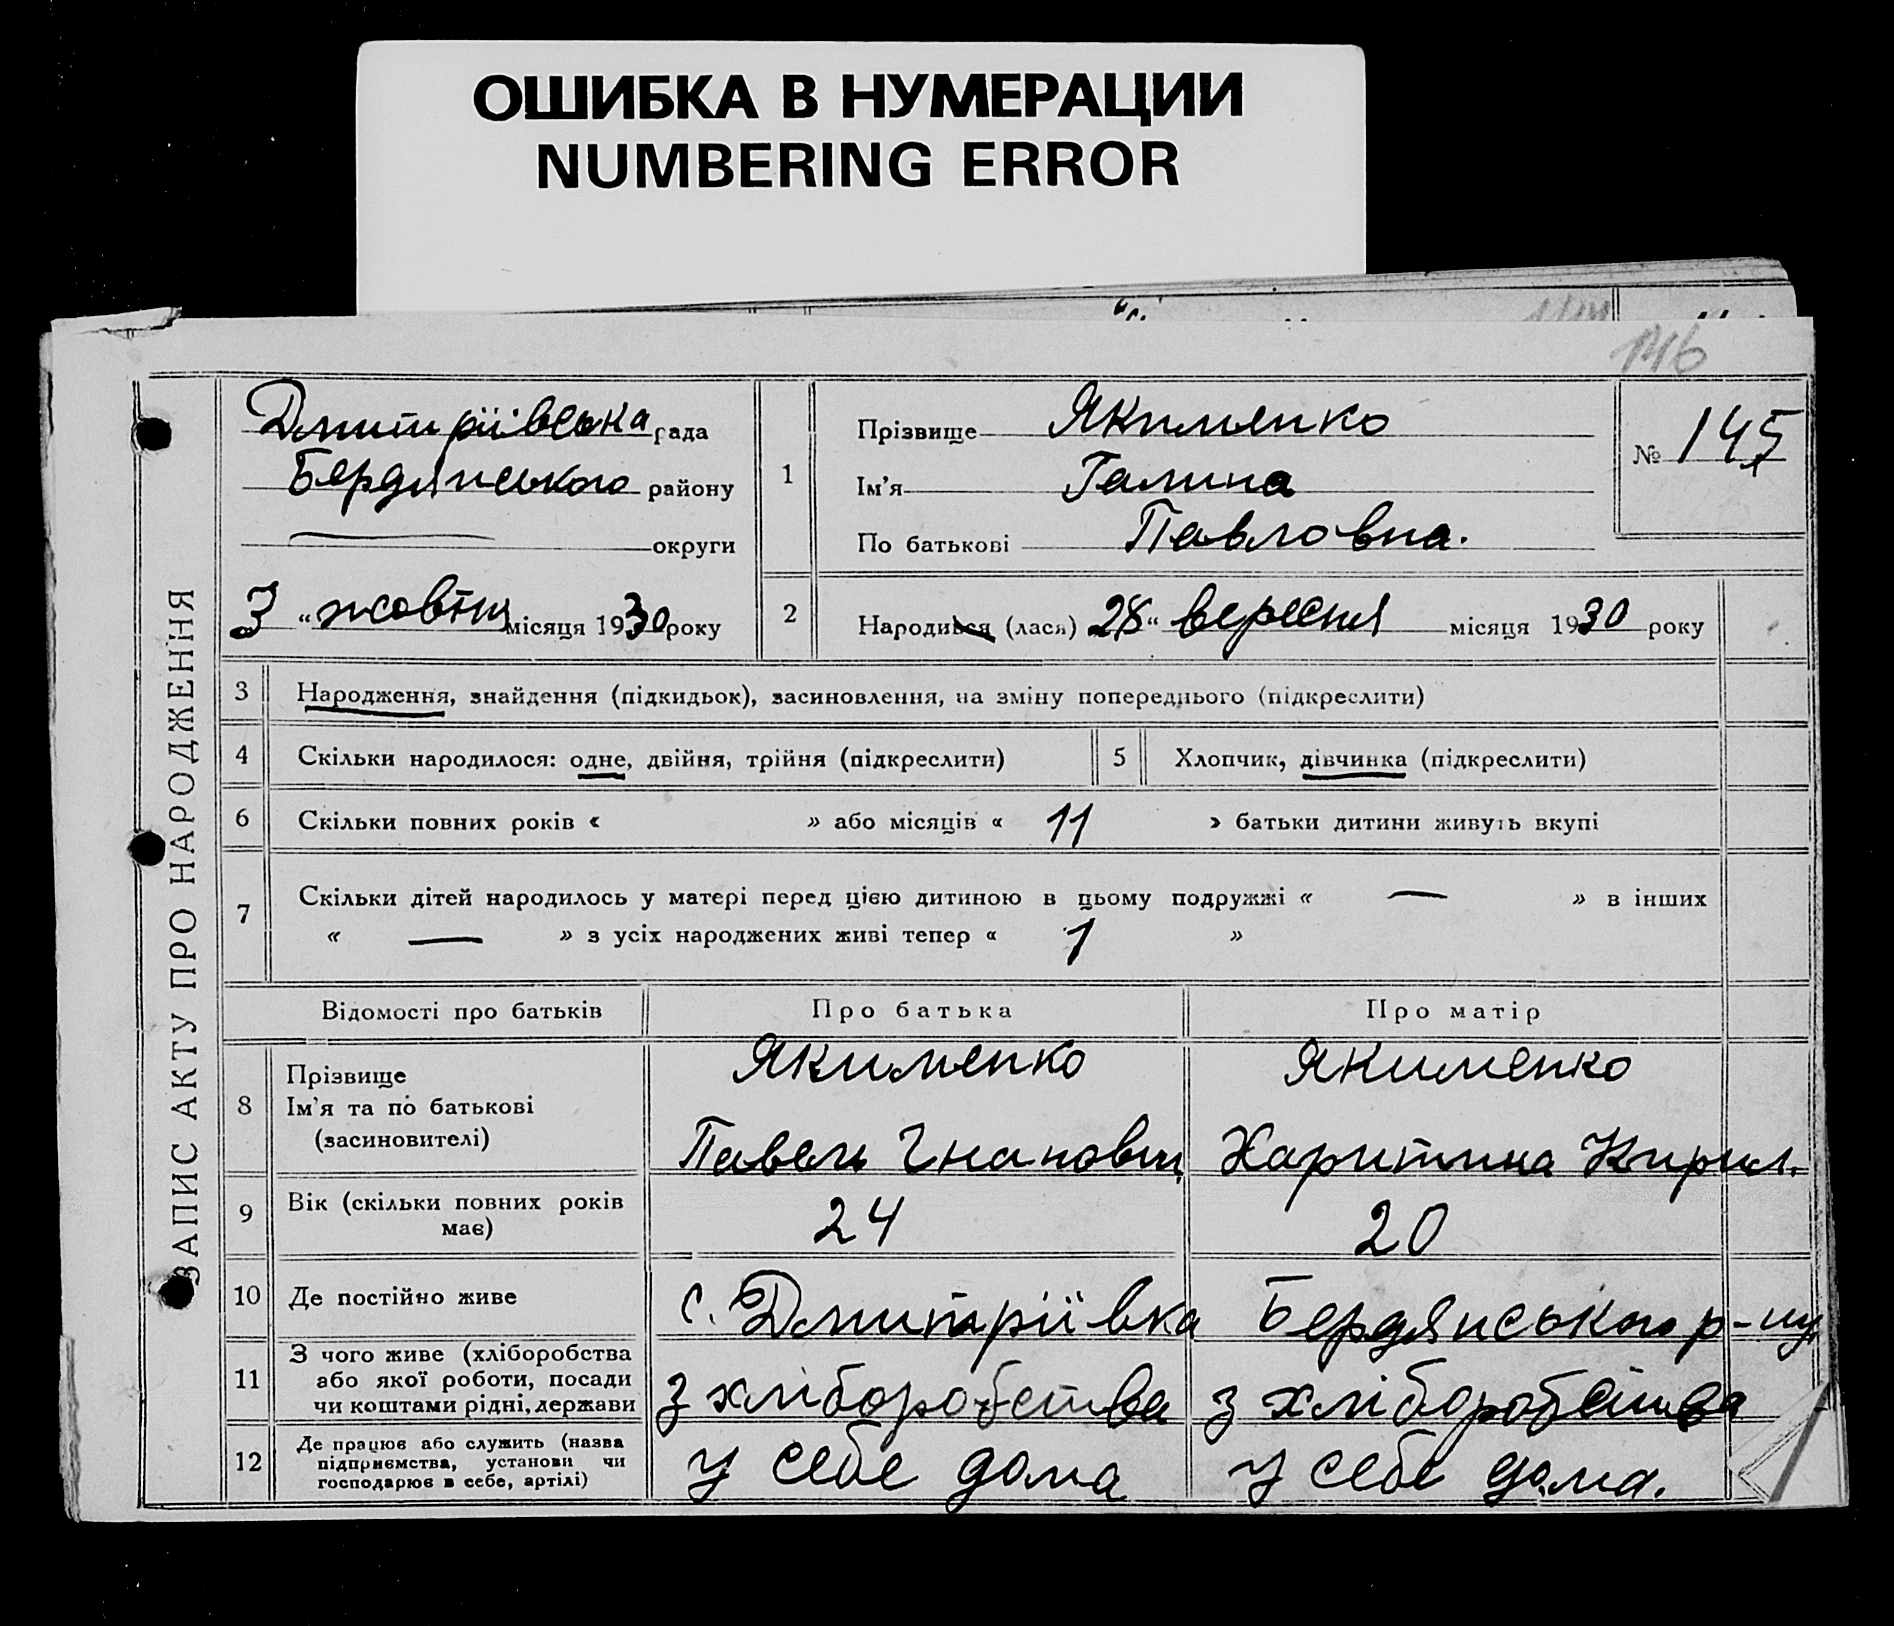 ОШИБКА В НУМЕРАЦИИ
NUMBERING ERROR
146
ЗАПИС АКТУ ПРО НАРОДЖЕННЯ
Дмитріївська рада
Бердянського району
округи
3 “ жовтня місяця 1930 року
1
Прізвище Якименко
Ім'я Галина
По батькові Павловна.
№ 145
2
Народився (лася) 28 “ вересня місяця 1930 року
3 Народження, знайдення (підкидьок), засиновлення, на зміну попереднього (підкреслити)
4 Скільки народилося: одне, двійня, трійня (підкреслити) 5 Хлопчик, дівчинка (підкреслити)
6 Скільки повних років « » або місяців « 11 » батьки дитини живуть вкупі
7 Скільки дітей народилось у матері перед цією дитиною в цьому подружжі « — » в інших
« — » з усіх народжених живі тепер « 1 »
Відомості про батьків Про батька Про матір
8 Прізвище Якименко Якименко
Ім'я та по батькові
(засиновителі) Павель Харитина Кирил.
9 Вік (скільки повних років має) 24 20
10 Де постійно живе с. Дмитріївка Бердянського р-ну
11 З чого живе (хліборобства
або якої роботи, посади
чи коштами рідні, держави з хліборобства з хліборобства
12 Де працює або служить (назва
підприємства, установи чи
господарює в себе, артілі) у себе дома у себе дома.